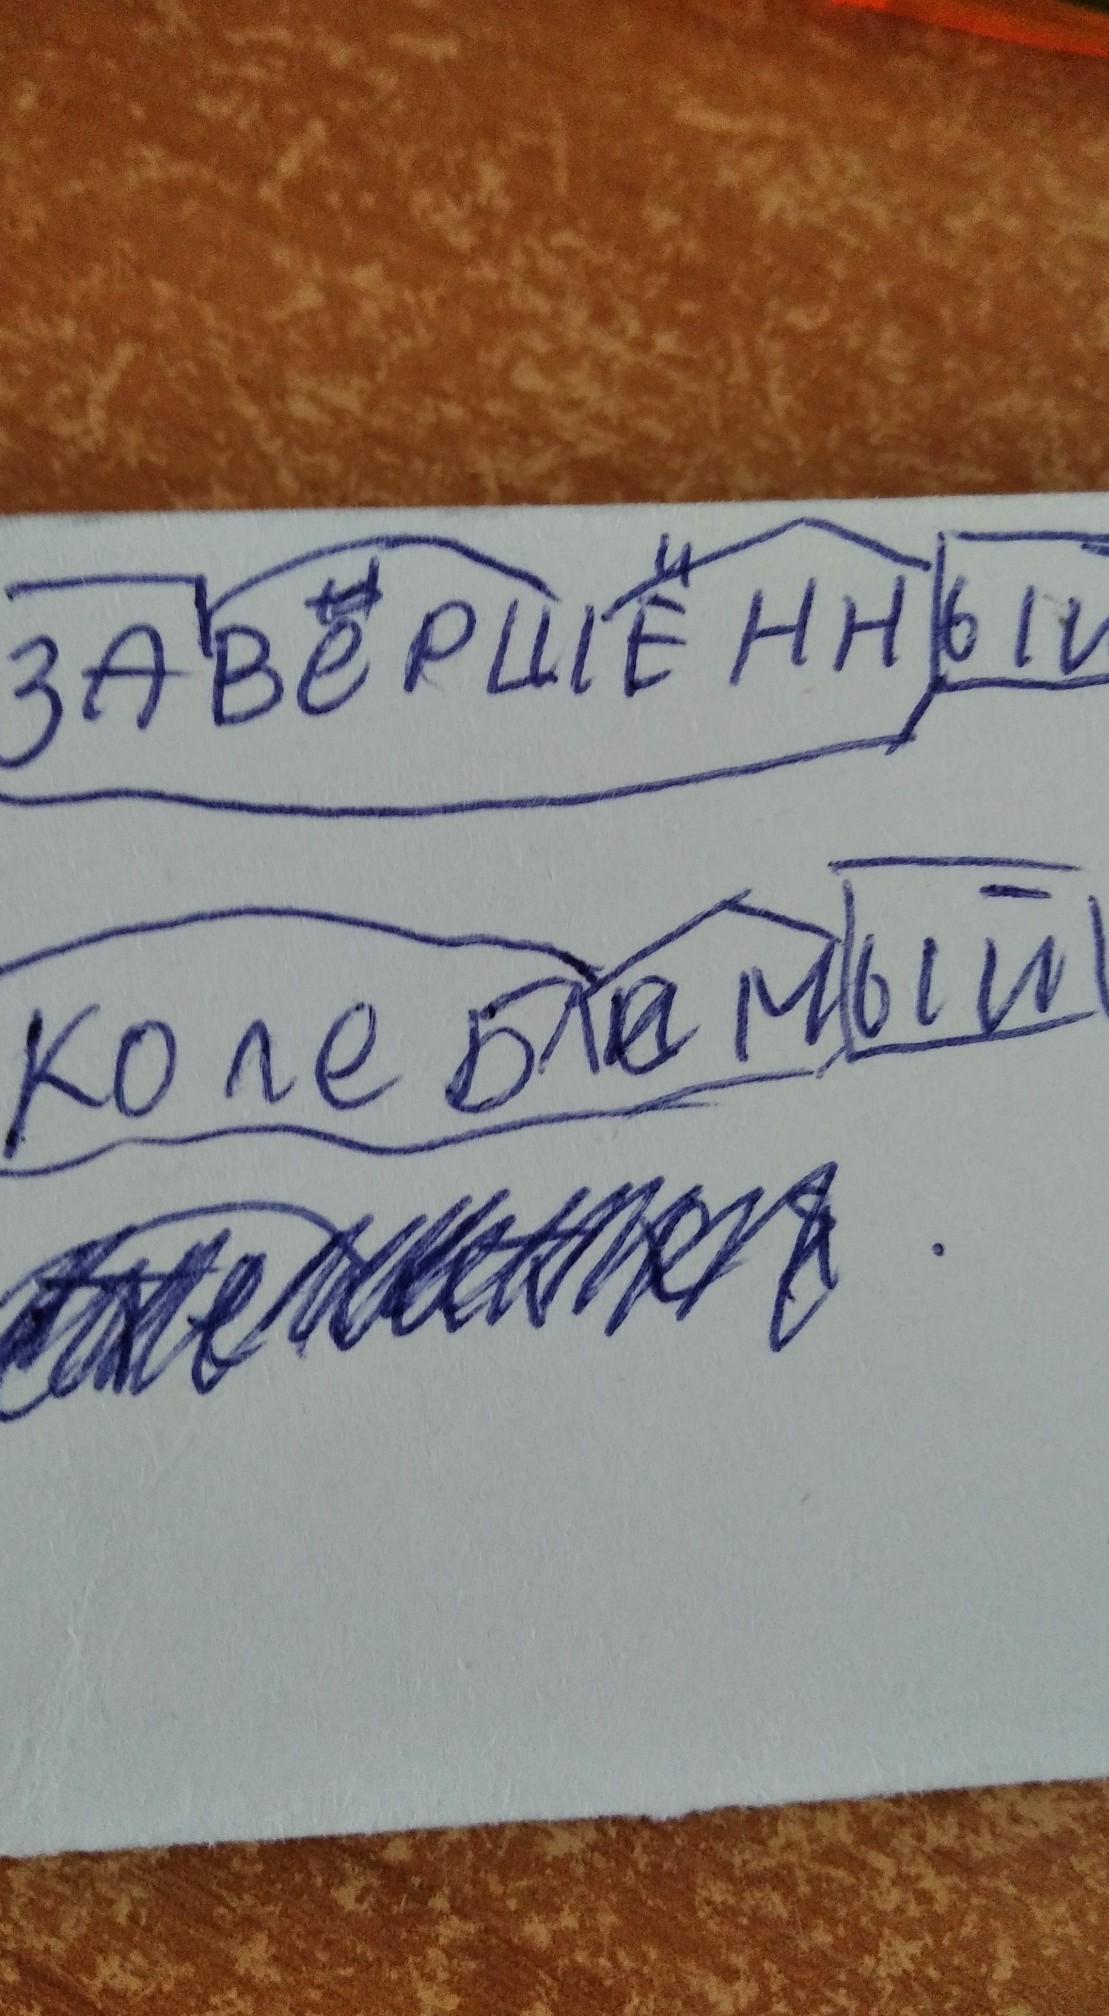 ЗАВеРШЁННЫЙ
КОЛеБЛеМЫЙ